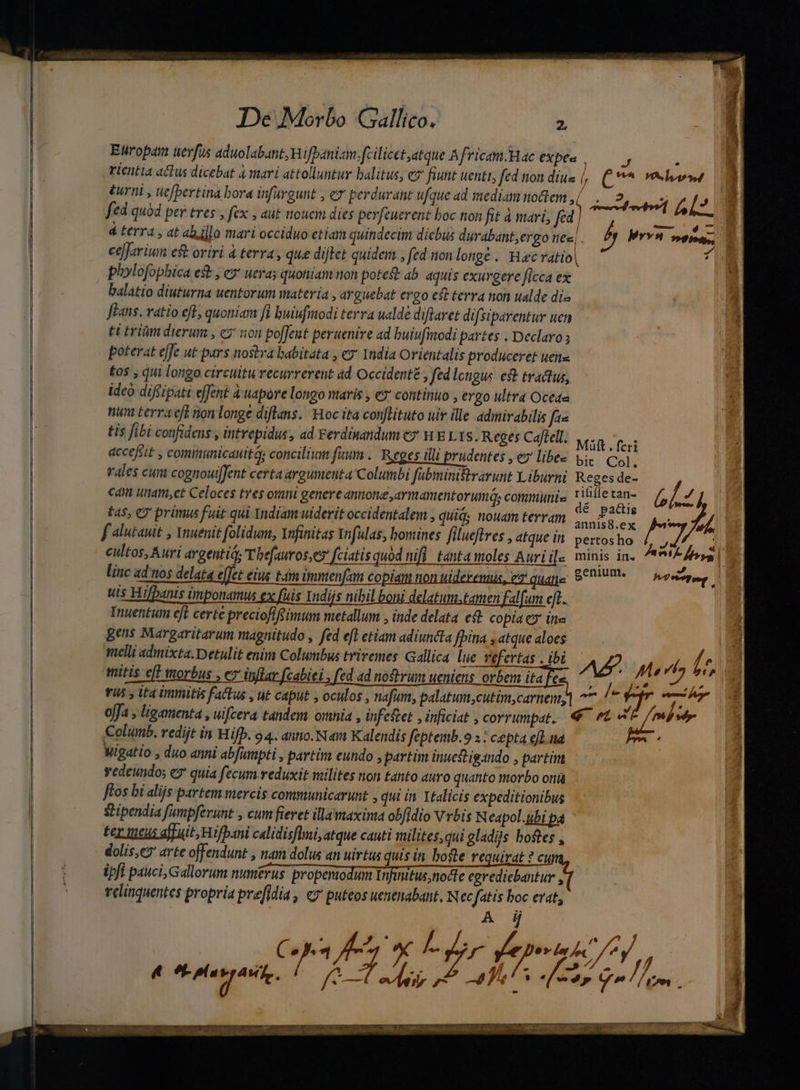 De Morbo Gallico. 2
Europam uerſus aduolabant, Hiſpaniam ſcilicet, atque Africam. Hac expe=
rientia actus dicebat à mari attolluntur halitus, et fiunt uenti, sed non diu=
turni, ueſpertina hora inſurgunt, et perdurant uſque ad mediam noctem,
ſed quòd per tres, ſex, aut nouem dies perſeuerent hoc non fit à mari, ſed
à terra, at ab illo mari occiduo etiam quindecim diebus durabant, ergo ne=
ceſſarium est oriri à terra, que diſtet quidem, ſed non longè. Hæc ratio
phyloſophica est, et uera; quoniam non potest ab aquis exurgere ſicca ex
halatio diuturna uentorum materia, arguebat ergo est terra non ualde di=
ſtans. ratio eſt, quoniam ſi huiuſmodi terra ualdè diſtaret diſsiparentur uen
ti triùm dierum, et non poſſent peruenire ad huiuſmodi partes. Declaro;
poterat eſſe ut pars nostra habitata, et India Orientalis produceret uen=
tos, qui longo circuitu recurrerent ad Occidentē, ſed longus est tractus,
ideò diſſipati eſſent à uapore longo maris, et continuo, ergo ultra Ocea=
num terra eſt non longè diſtans. Hoc ita conſtituto uir ille admirabilis ſa=
tis ſibi confidens, intrepidus, ad Ferdinandum et HELIS. Reges Caſtell.
acceßit, communicauitq; concilium ſuum. Reges illi prudentes, et libe=
rales cum cognouiſſent certa argumenta Columbi ſubministrarunt Liburni
cam unam, et Celoces tres omni genere annonæ, armamentorumq; communi=
tas, et primus fuit qui Indiam uiderit occidentalem, quiq; nouam terram
ſalutauit, Inuenit ſolidum, Infinitas Inſulas, homines ſilueſtres, atque in
cultos, Auri argentiq; Theſauros, et ſciatis quòd niſi tanta moles Auri il=
linc ad nos delata eſſet eius tàm immenſam copiam non uideremus, et qua=
uis Hiſpanis imponamus ex ſuis Indijs nihil boni delatum, tamen falſum eſt.
Inuentum eſt certè precioſiſſimum metallum, inde delata est copia et in=
gens Margaritarum magnitudo, ſed eſt etiam adiuncta ſpina, atque aloes
melli admixta. Detulit enim Columbus triremes Gallica lue refertas. ibi
mitis eſt morbus, et inſtar ſcabiei, ſed ad nostrum ueniens orbem ita fe=
rus, ita immitis factus, ut caput, oculos, naſum, palatum, cutim, carnem,
oſſa, ligamenta, uiſcera tandem omnia, infestet, inficiat, corrumpat.
Columb. redijt in Hiſp. 94. anno. Nam Kalendis ſeptemb. 92. cæpta eſt na
uigatio, duo anni abſumpti, partim eundo, partim inuestigando, partim
redeundo; et quia ſecum reduxit milites non tanto auro quanto morbo onu
ſtos hi alijs partem mercis communicarunt, qui in Italicis expeditionibus
stipendia ſumpſerunt, cum fieret illa maxima obſidio Vrbis Neapol. ubi pa
ter meus affuit, Hiſpani calidiſſimi, atque cauti milites, qui gladijs hostes,
dolis, et arte offendunt, nam dolus an uirtus quis in hoste requirat? cum,
ipſi pauci, Gallorum numerus propemodum Infinitus, nocte egrediebantur,
relinquentes propria præſidia, et puteos uenenabant. Nec ſatis hoc erat,
A ij
Mūſt. ſcri
bit Col.
Reges de-
rifiſſe tan-
dē pactis
annis 8. ex
pertos ho
minis in-
genium.